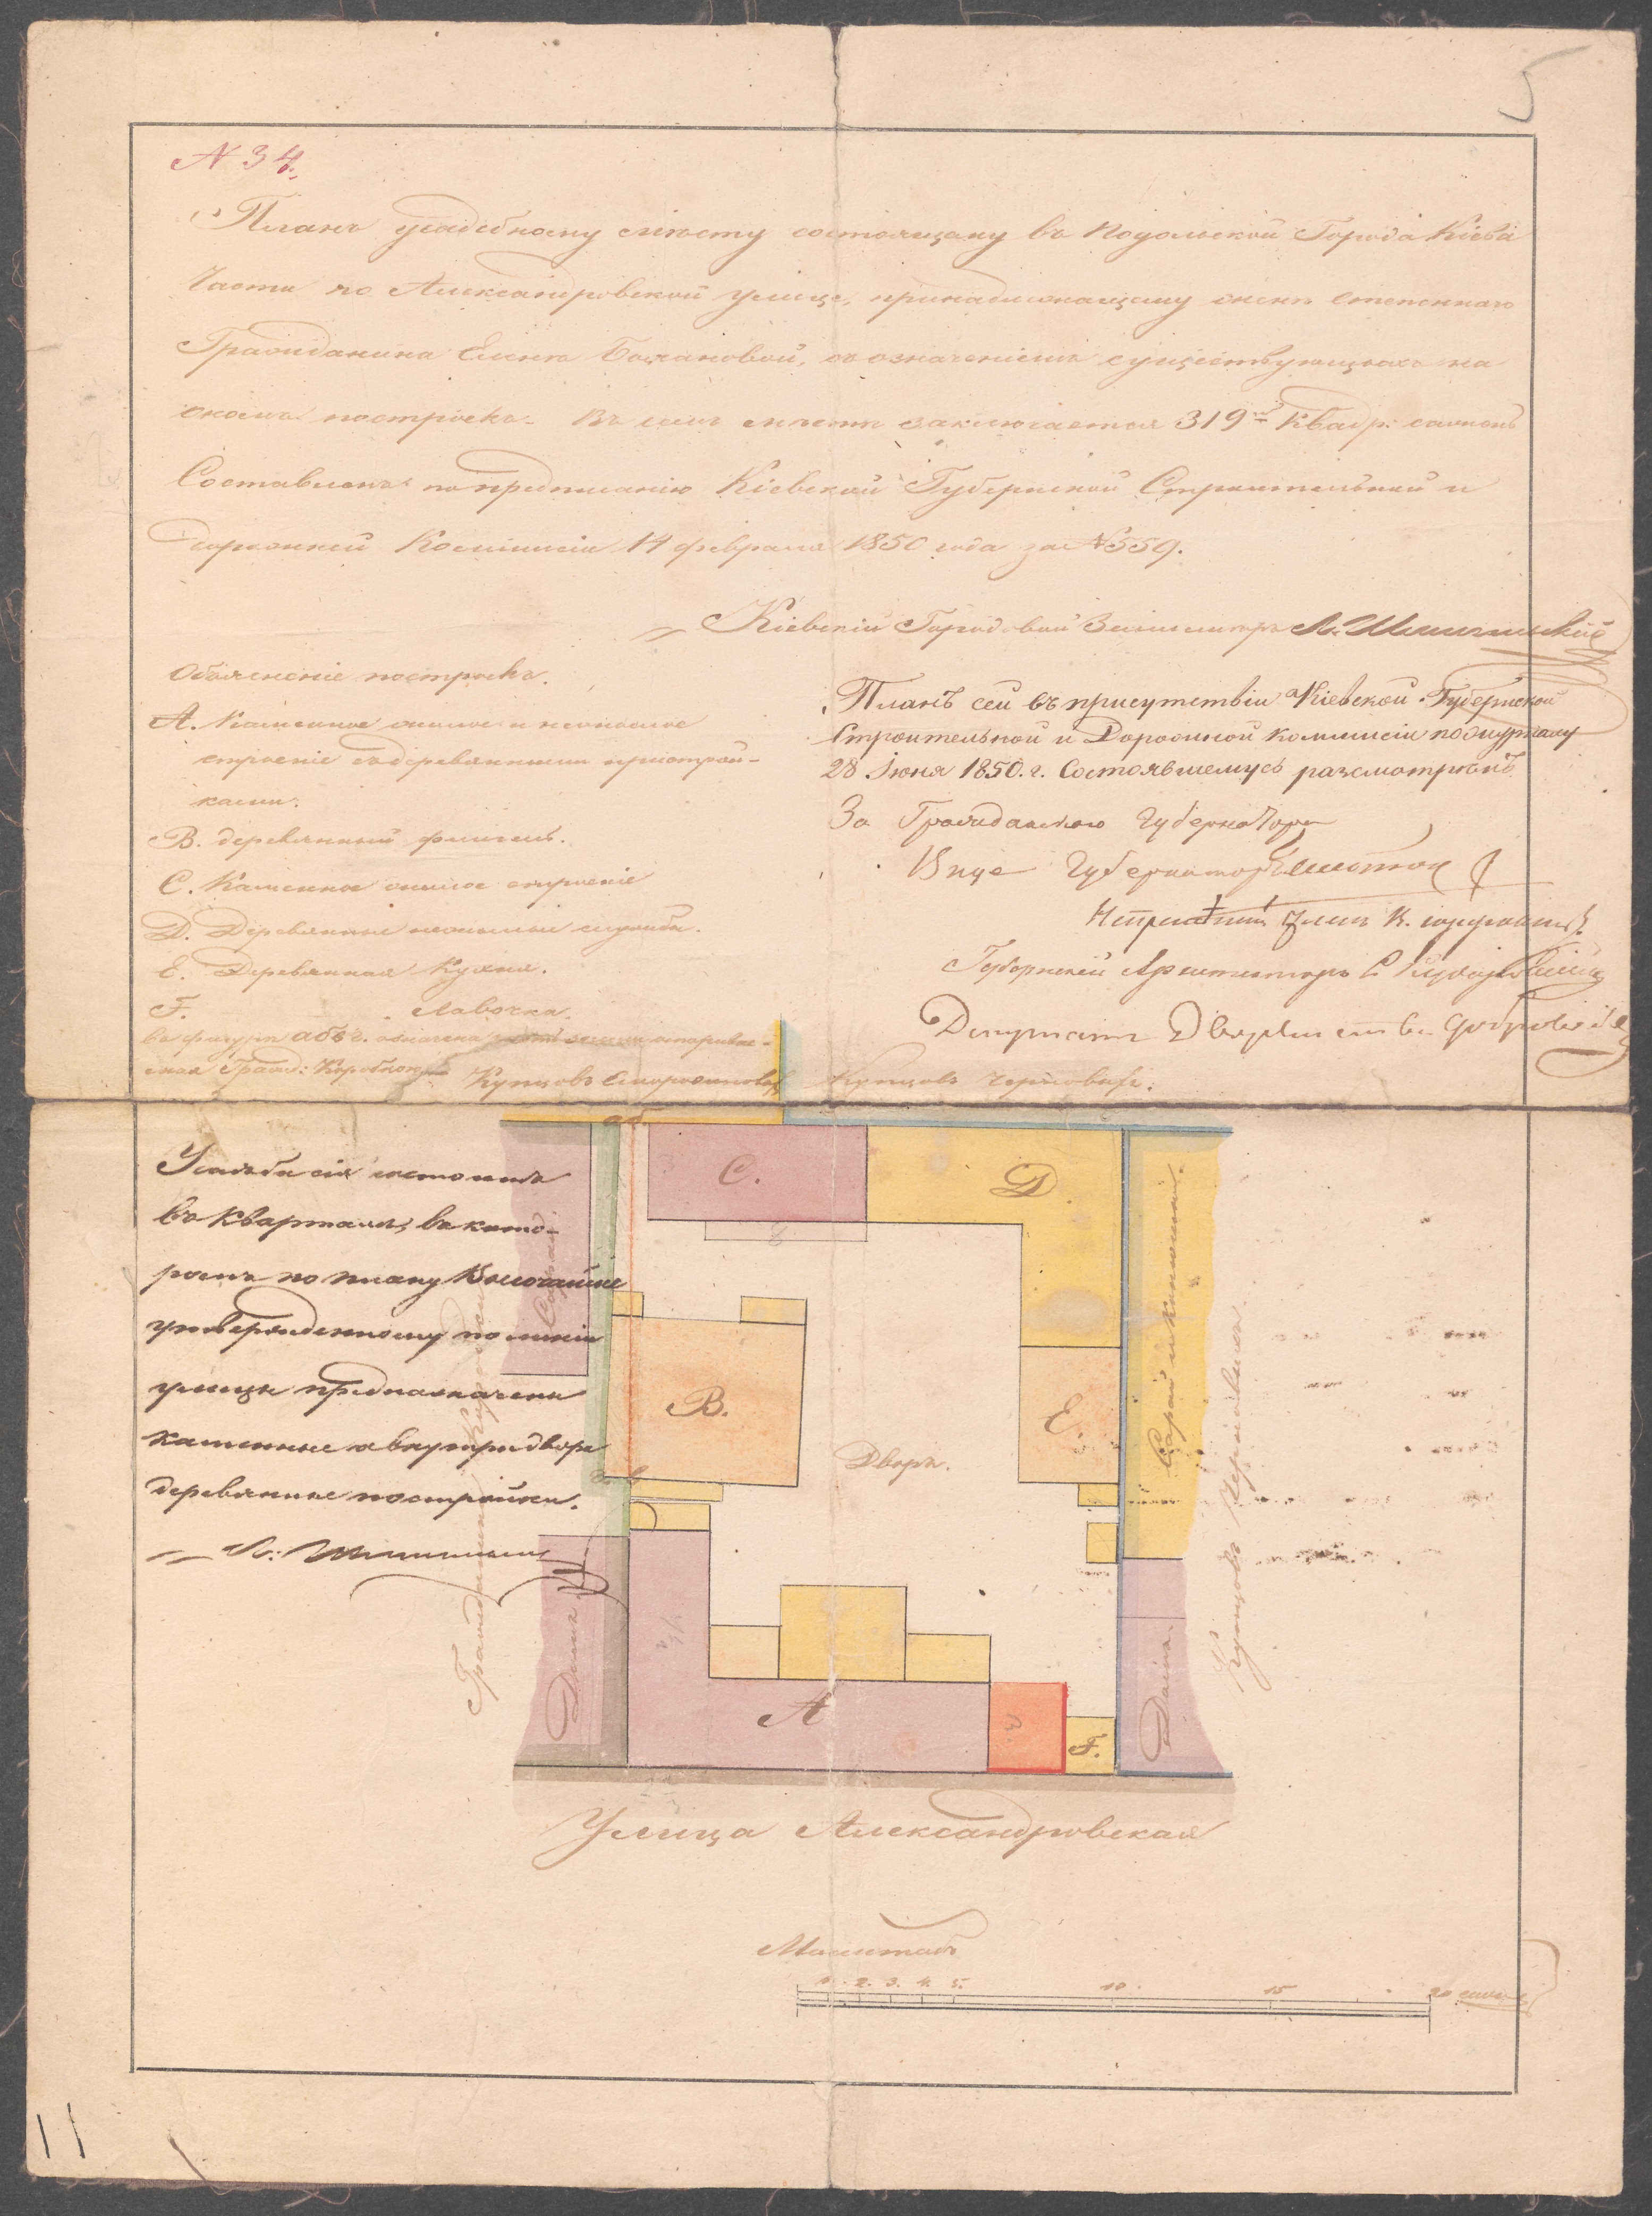 5
N 34.
Планъ усадебному мѣсту состоящему въ Подольской Города Кіева
Части по Александровской улице, принадлежащему женѣ Степеннаго
Гражданина Еленѣ Бажановой, съ означеніемъ существующихъ на
ономъ построекъ. Въ семъ мѣстѣ заключается 319 квадр: сажень
Составленъ по предписанію Кіевской Губернской Строительной и
Дорожной Коммисіи 14 февраля 1850 года за №559.
Кіевскій Городовой Землемѣръ Л.
Объясненіе построекъ.
А. Каменное жилое и нежилое
строеніе съ деревянными пристрой-
ками.
В. деревянный флигель.
С. Каменное жилое строеніе
Д. Деревянные нежилые службы.
Е. Деревянная Кухня.
F. Лавочка.
въ фигуре абвг. означена земли оспаривае-
мая Гражд: Коробкою
Планъ сей въ присутствіи Кіевской Губернской
Строительной и Дорожной Коммисіи по журналу
28 Іюня 1850. г. Состоявшемуся разсмотрѣнъ
За Гражданскаго Губернатора
Вице Губернаторъ
Непремѣнный Членъ К.
Губернскій Архитекторъ
Депутатъ Дворянства
Купцовъ
Купцовъ Черновыхъ.
Усадьба сія состоитъ
въ Кварталѣ, въ кото-
ромъ по плану Высочайше
утвержденному по линіи
улицы предназначены
каменные а внутри двора
деревянные постройки.
Л:
аб
С.
D
В.
Е.
Дворъ.
г в
А
F.
Сарай
Сарай и Конюшни.
Домъ
Домъ.
Гражданина Коробки
Купцовъ Черновыхъ.
Улица Александровская
Масштабъ
1. 2. 3. 4. 5. 10. 15 20 саж
11